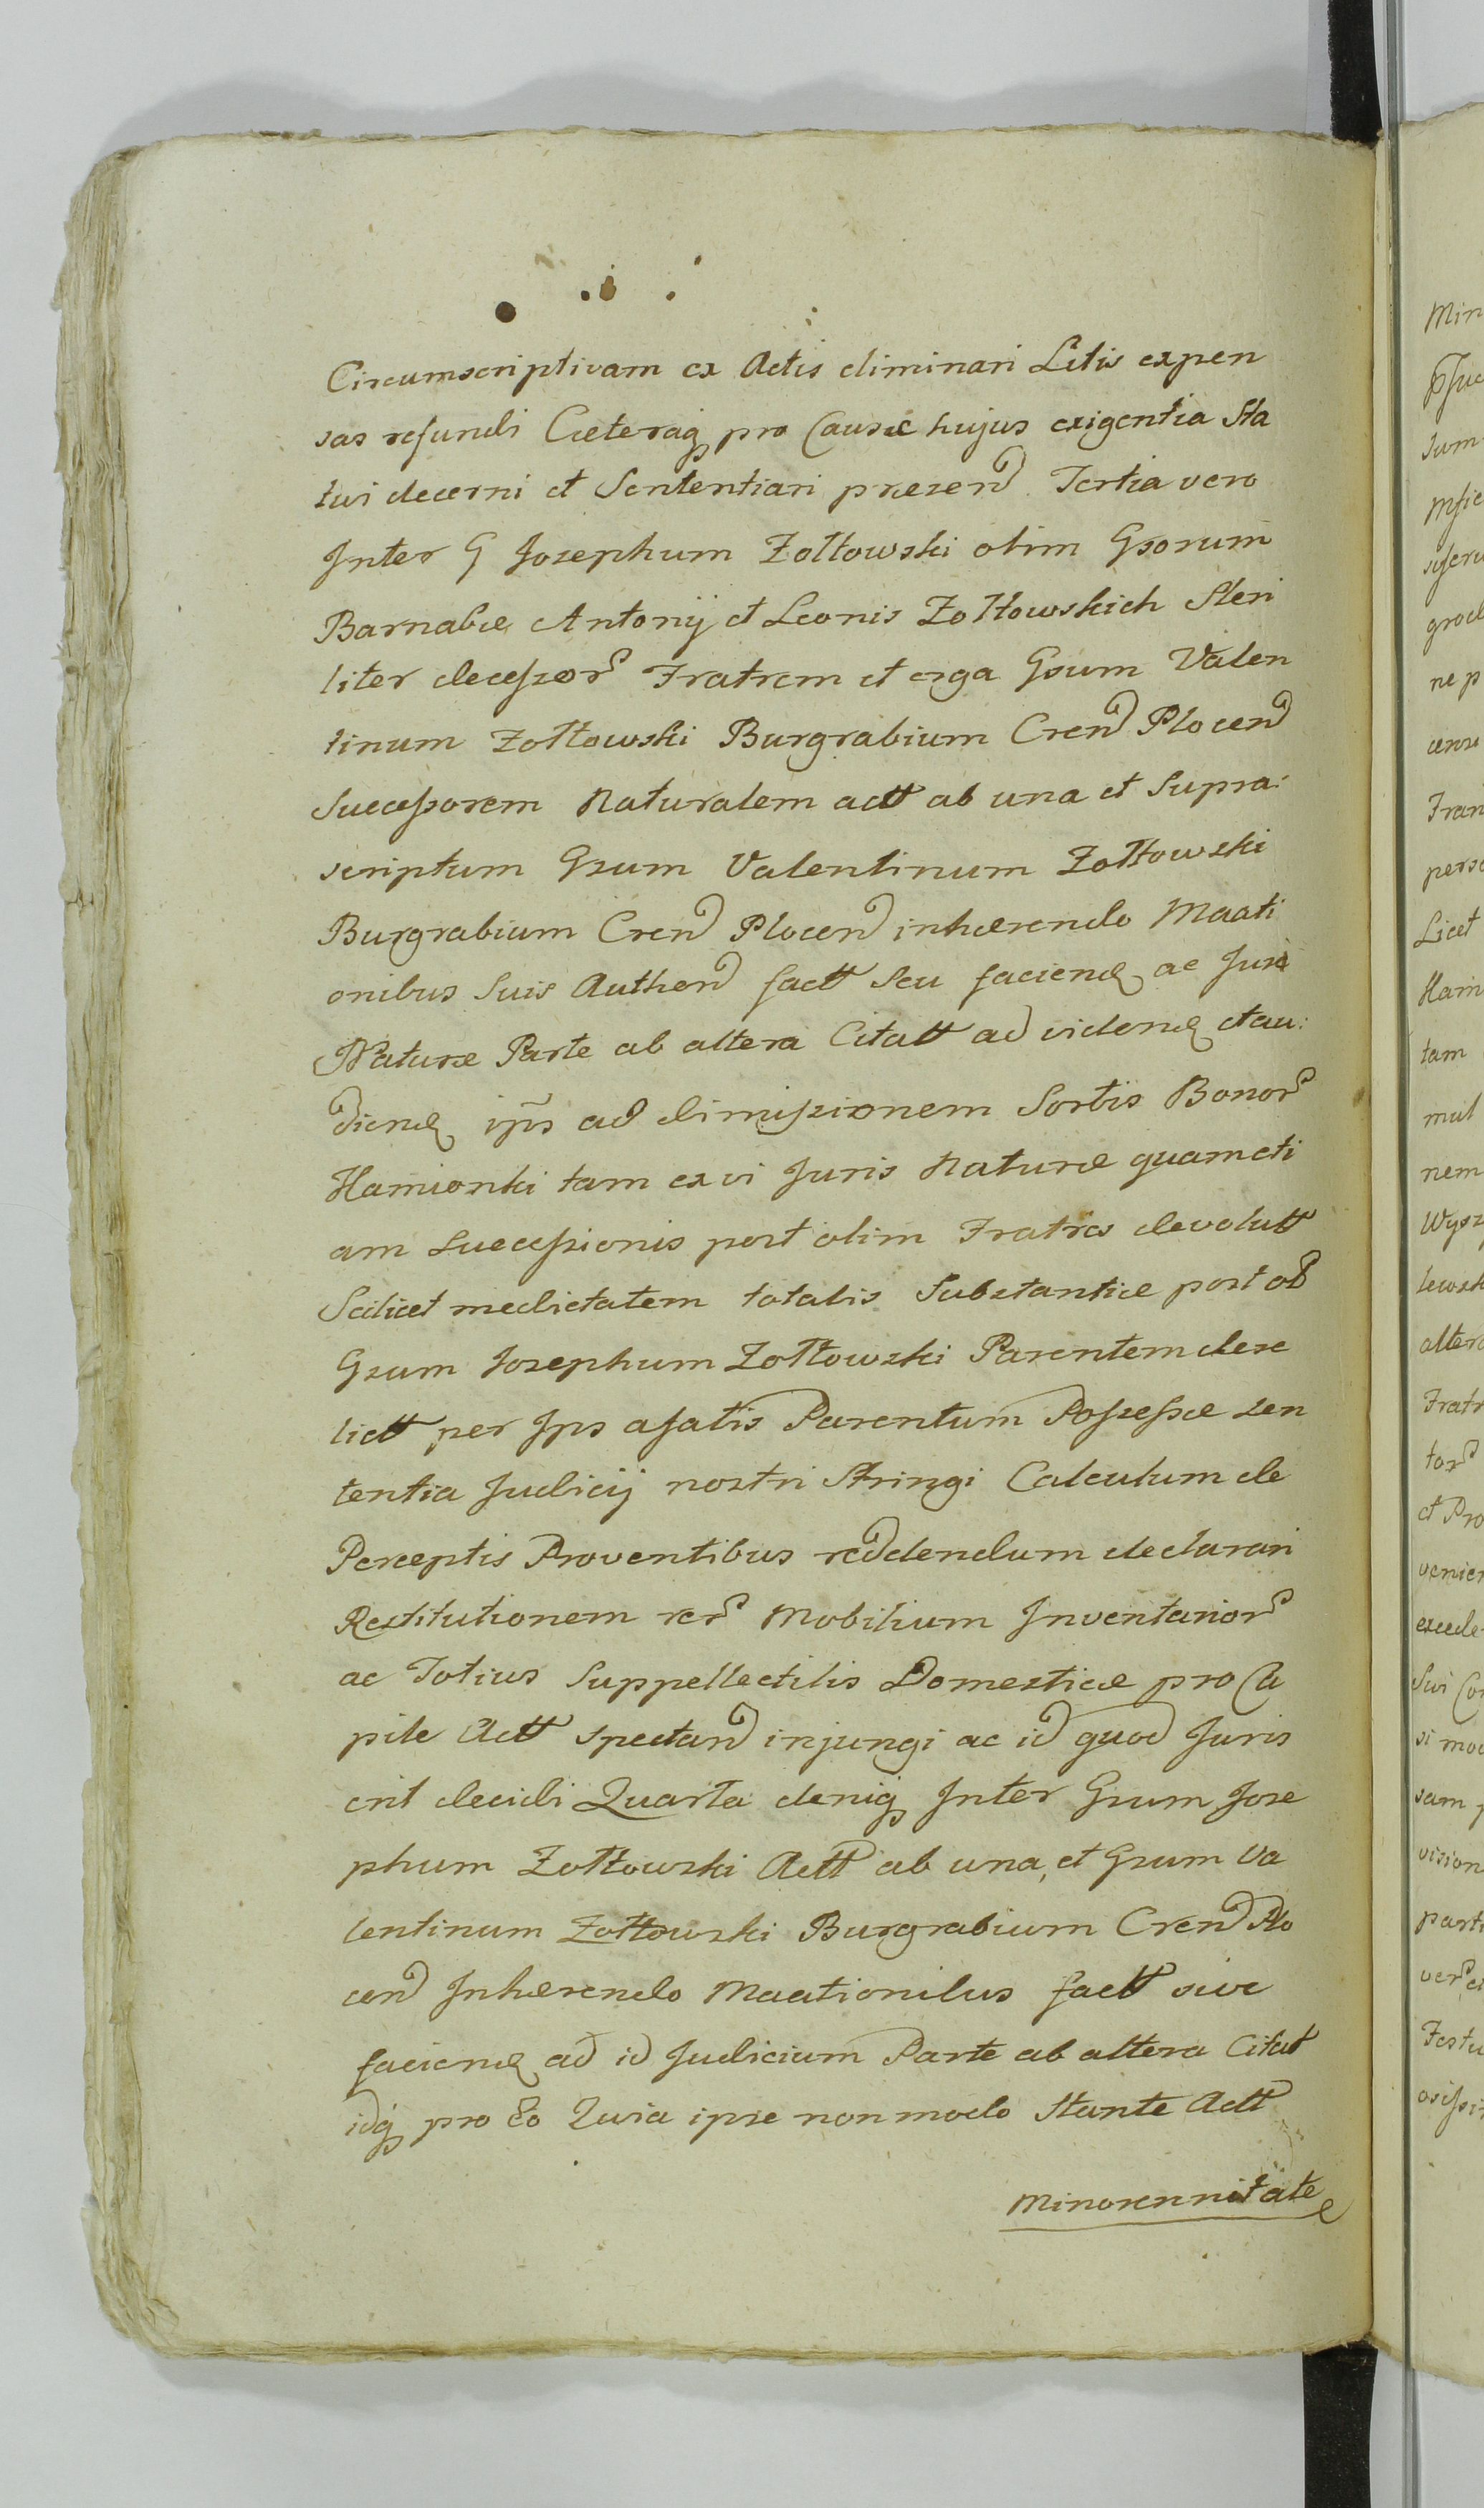 Circumscriptivam ex Actis eliminari Litis expen
sas refundi Cæteraq pro Causæ hujus exigentia Sta
tui decerni et Sententiari præsend Tertia vero
Inter G Josephum Zołtowski olim Gsorum
Barnabæ Antonij et Leonis Zołtowskich Steri
liter decessor Fratrem et erga Gsum Valen
tinum Zołtowski Burgrabium Cren Plocen
Successorem Naturalem actt ab una et Supra:
scriptum Gsum Valentinum Zołtowski
Burgrabium Cren Plocen inhærendo Maati
onibus Suis Authen factt Seu faciend ac Juri
Naturæ Parte ab altera Citatt ad vidend et au:
diend ips ad dimissionem Sortis Bonor
Hamionki tam ex vi Juris Naturæ quam eti
am Successionis post olim Fratres devolutt
Scilicet medietatem totalis Substantiæ post ol
Gsum Josephum Zołtowski Parentem dere
lictt per Ips afatis Parentum Possessæ sen
tentia Judicij nostri Stringi Calculum de
Perceptis Proventibus reddendum declarari
Restitutionem rer Mobilium Inventarior
ac Totius Suppellectilis Domesticæ pro Ca
pite Actt spectan injungi ac id quod Juris
erit decidi Quarta deniq Inter Gsum Jose
phum Zołtowski Actt ab una, et Gsum Va
lentinum Zołtowski Burgrabium Cren Plo
cen Inhærendo Maationibus factt sive
faciend ad id Judicium Parte ab altera Citat
idq pro Eo Quia ipse non modo Stante Actt
Minorennitate